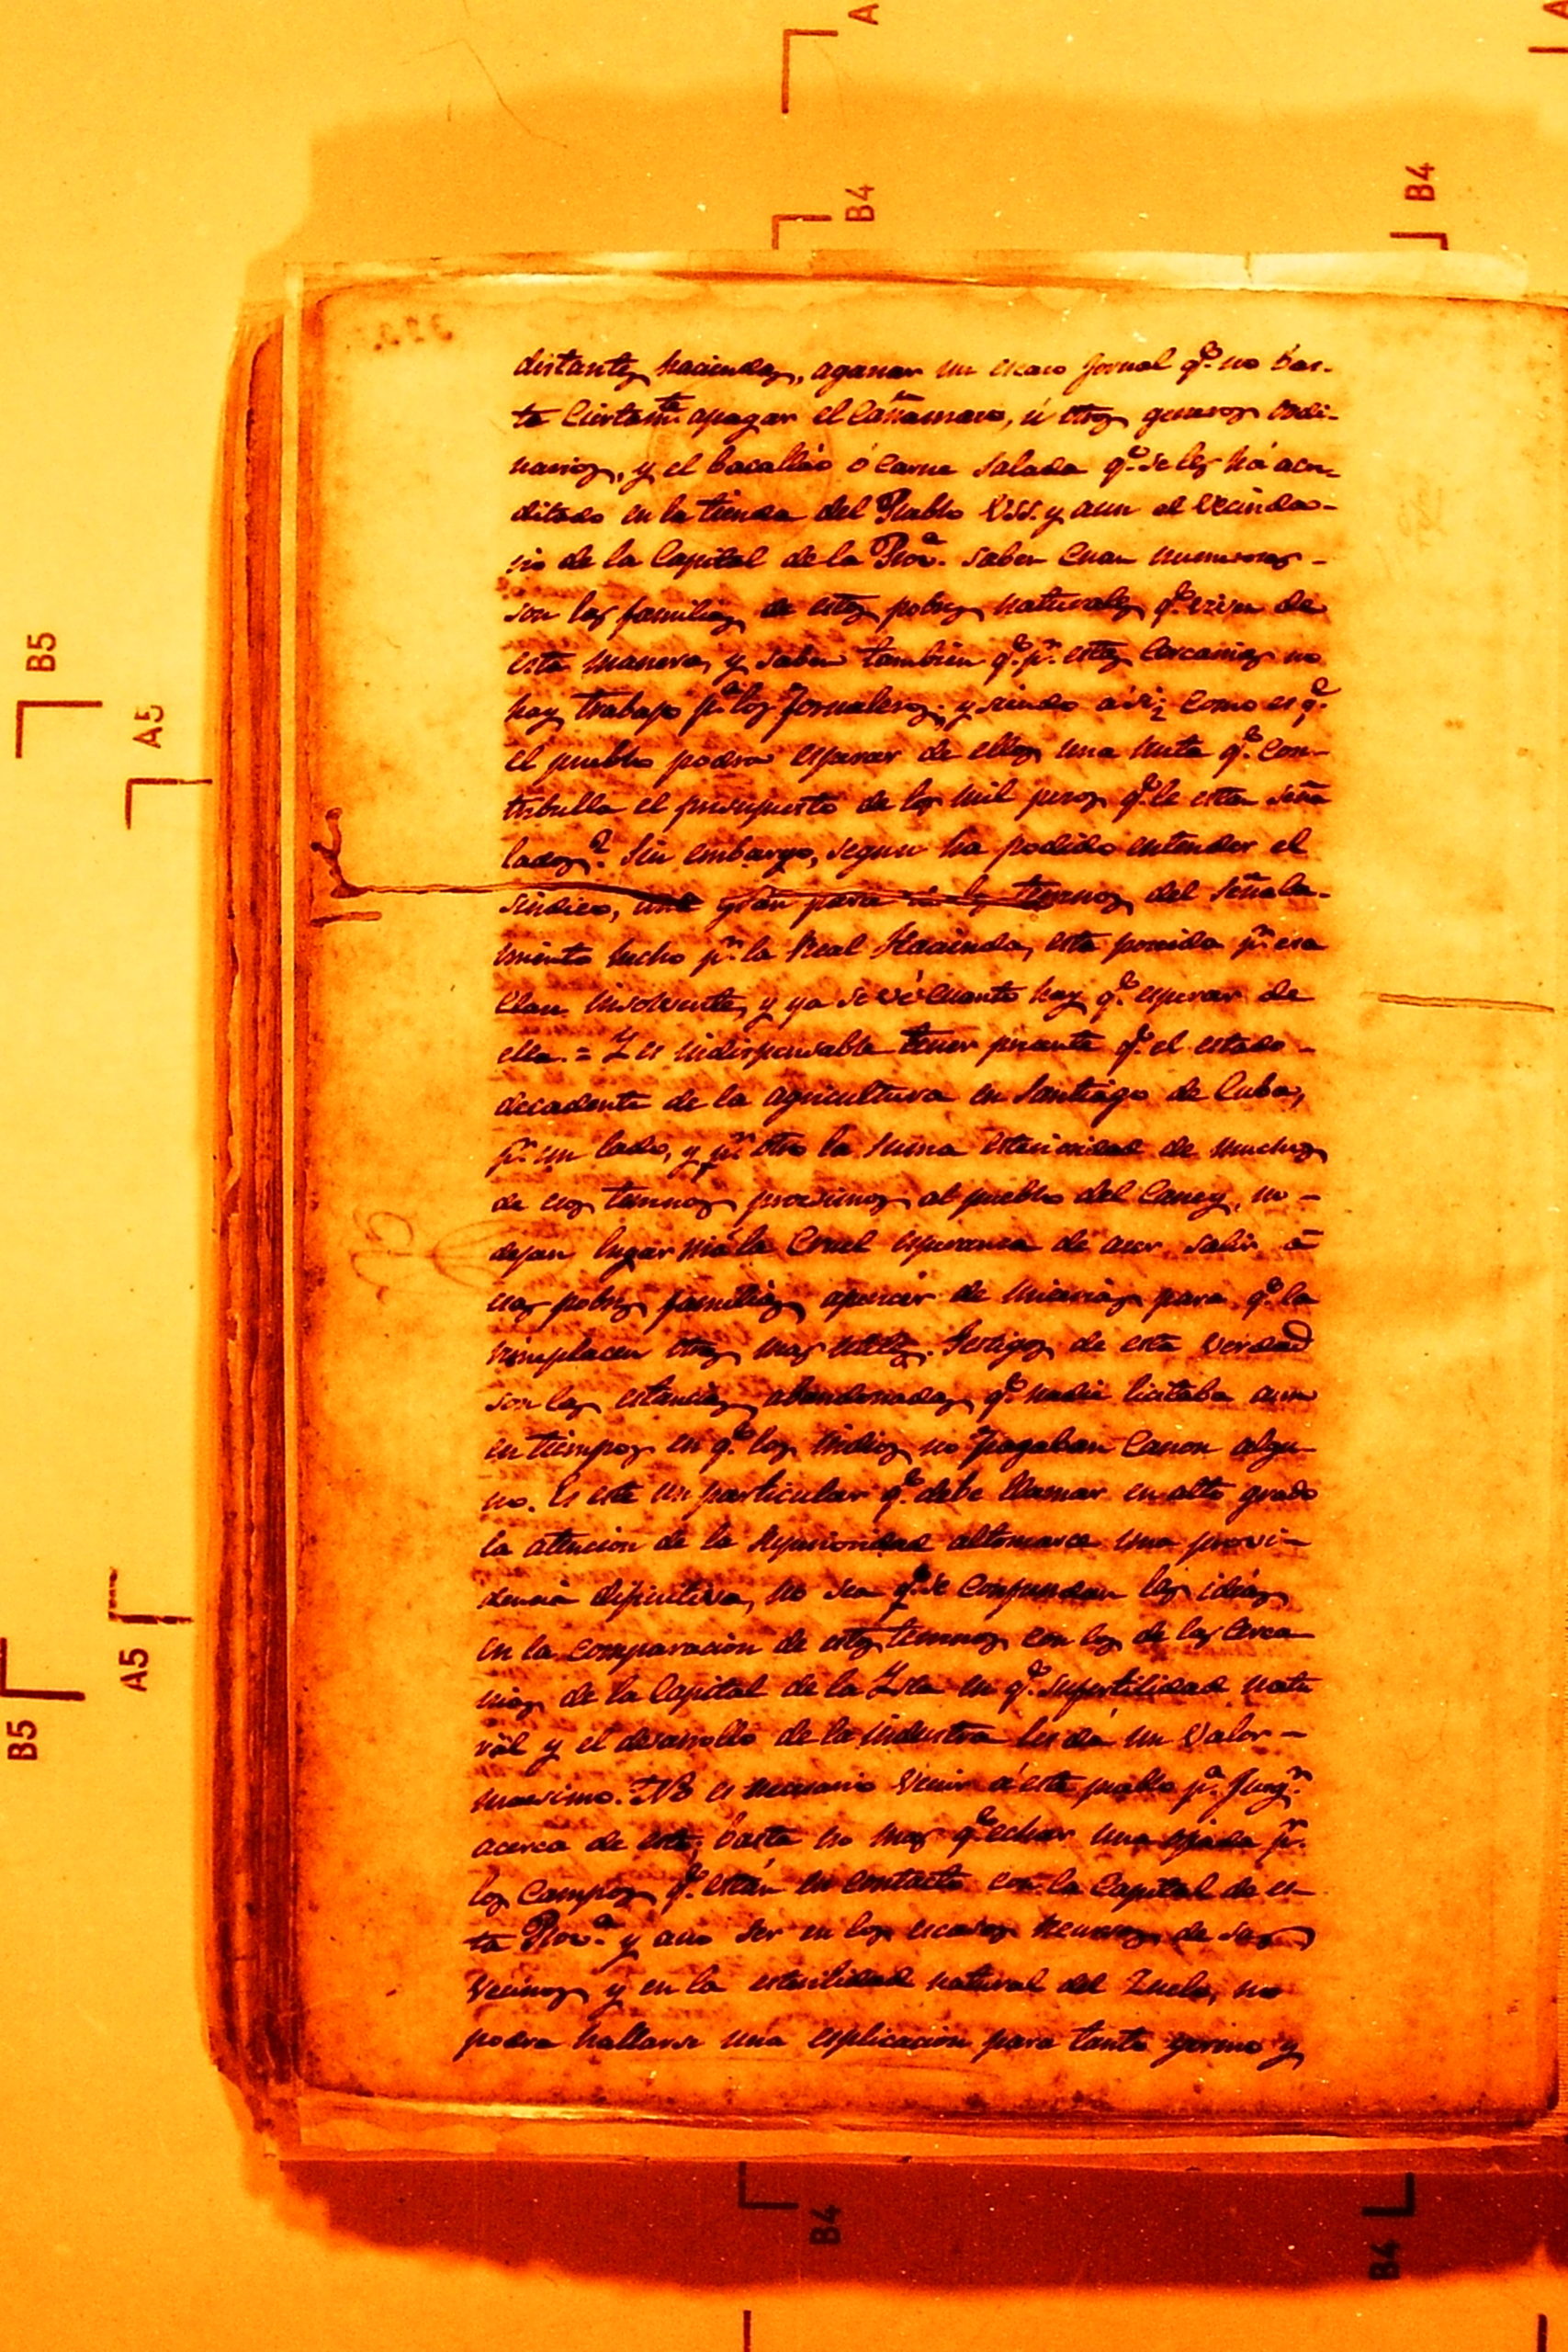 distantes haciendas, aganar un escaso jornal q.e no bas-
ta ciertam.te apagar el cañamaso, ú otros generos ordi-
narios, y el bacallao ó carne salada q.e se les há acre-
ditado en la tienda del Pueblo VSS. y aun el vecinda-
rio de la Capital de la Prov.a saben cuan numerosas -
son las familias de estos pobres naturales q.e viven de
esta manera, y saben tambien q.e p.r estas cercanias no
hay trabajo p.a los jornaleros; y siendo asi; como es q.e
el pueblo podra esperar de ellos una renta q.e con-
tribulla el presupuesto de los mil pesos q.e le esta seña
lados? Sin embargo, segun ha podido entender el
sindico, una gran para de los terrenos del señala-
miento hecho p.r la Real Hacienda, esta poseida p.r esa
clase insolvente, y ya se vé cuanto hay q.e esperar de
ella = Y es indispensable tener presente q.e el estado -
decadente de la agricultura en Santiago de Cuba,
p.r un lado, y p.r otro la suma esterioridad de muchos
de esos terrenos procsimos al pueblo del Caney, no -
dejan lugar ni á la cruel esperanza de acer salir á
esas pobres familias aperecer de miserias para q.e la
reemplacen otras mas utiles. Testigos de esta verdad
son las estancias abandonadas q.e nadie licitaba aun
en tiempos en q.e los Indios no pagaban canon algu-
no. Es este un particular q.e debe llamar en alto grado
la atencion de la Superioridad altomarce una provi-
dencia difinitiva, no sea q.e se confundan las ideas
en la comparacion de estos terrenos con los de las cerca
nias de la Capital de la Isla en q.e su fertilidad natu
ral y el desarrollo de la industria les dá un valor -
macsimo. No es necesario venir á este pueblo p.a juzg.r
acerca de esto; basta no mas q.e echar una ojeada p.r
los campos q.e están en contacto con la Capital de es-
ta Prov.a y ano ser en los escasos recursos de sus
vecinos y en la esterilidad natural del Suelo, no
podra hallarse una esplicacion para tanto yermo y